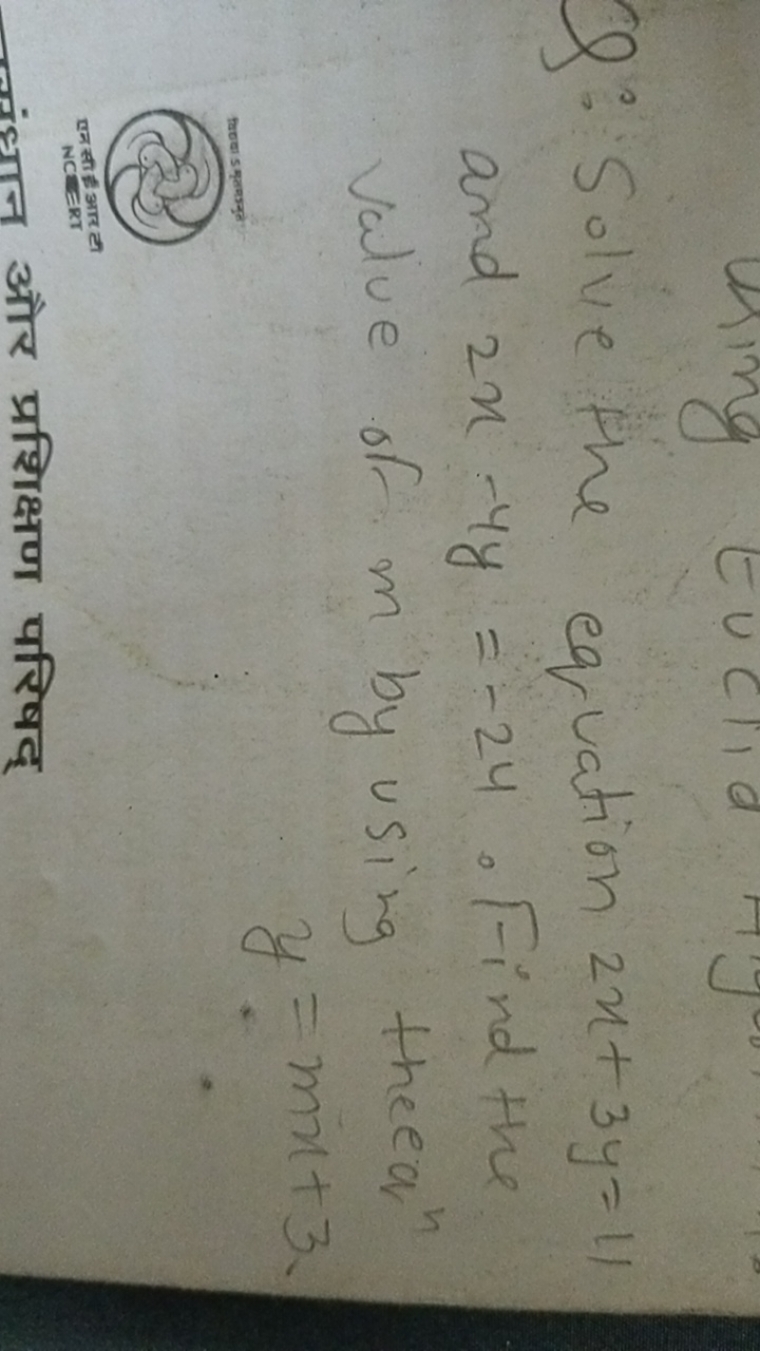 using Euclid
Q: Solve the equation 2x + 3y = 11
and 2x - 4y = -24 . Find the
value of m by using the eqⁿ
y = mx + 3
एन सी ई आर टी
NCERT
और प्रशिक्षण परिषद्